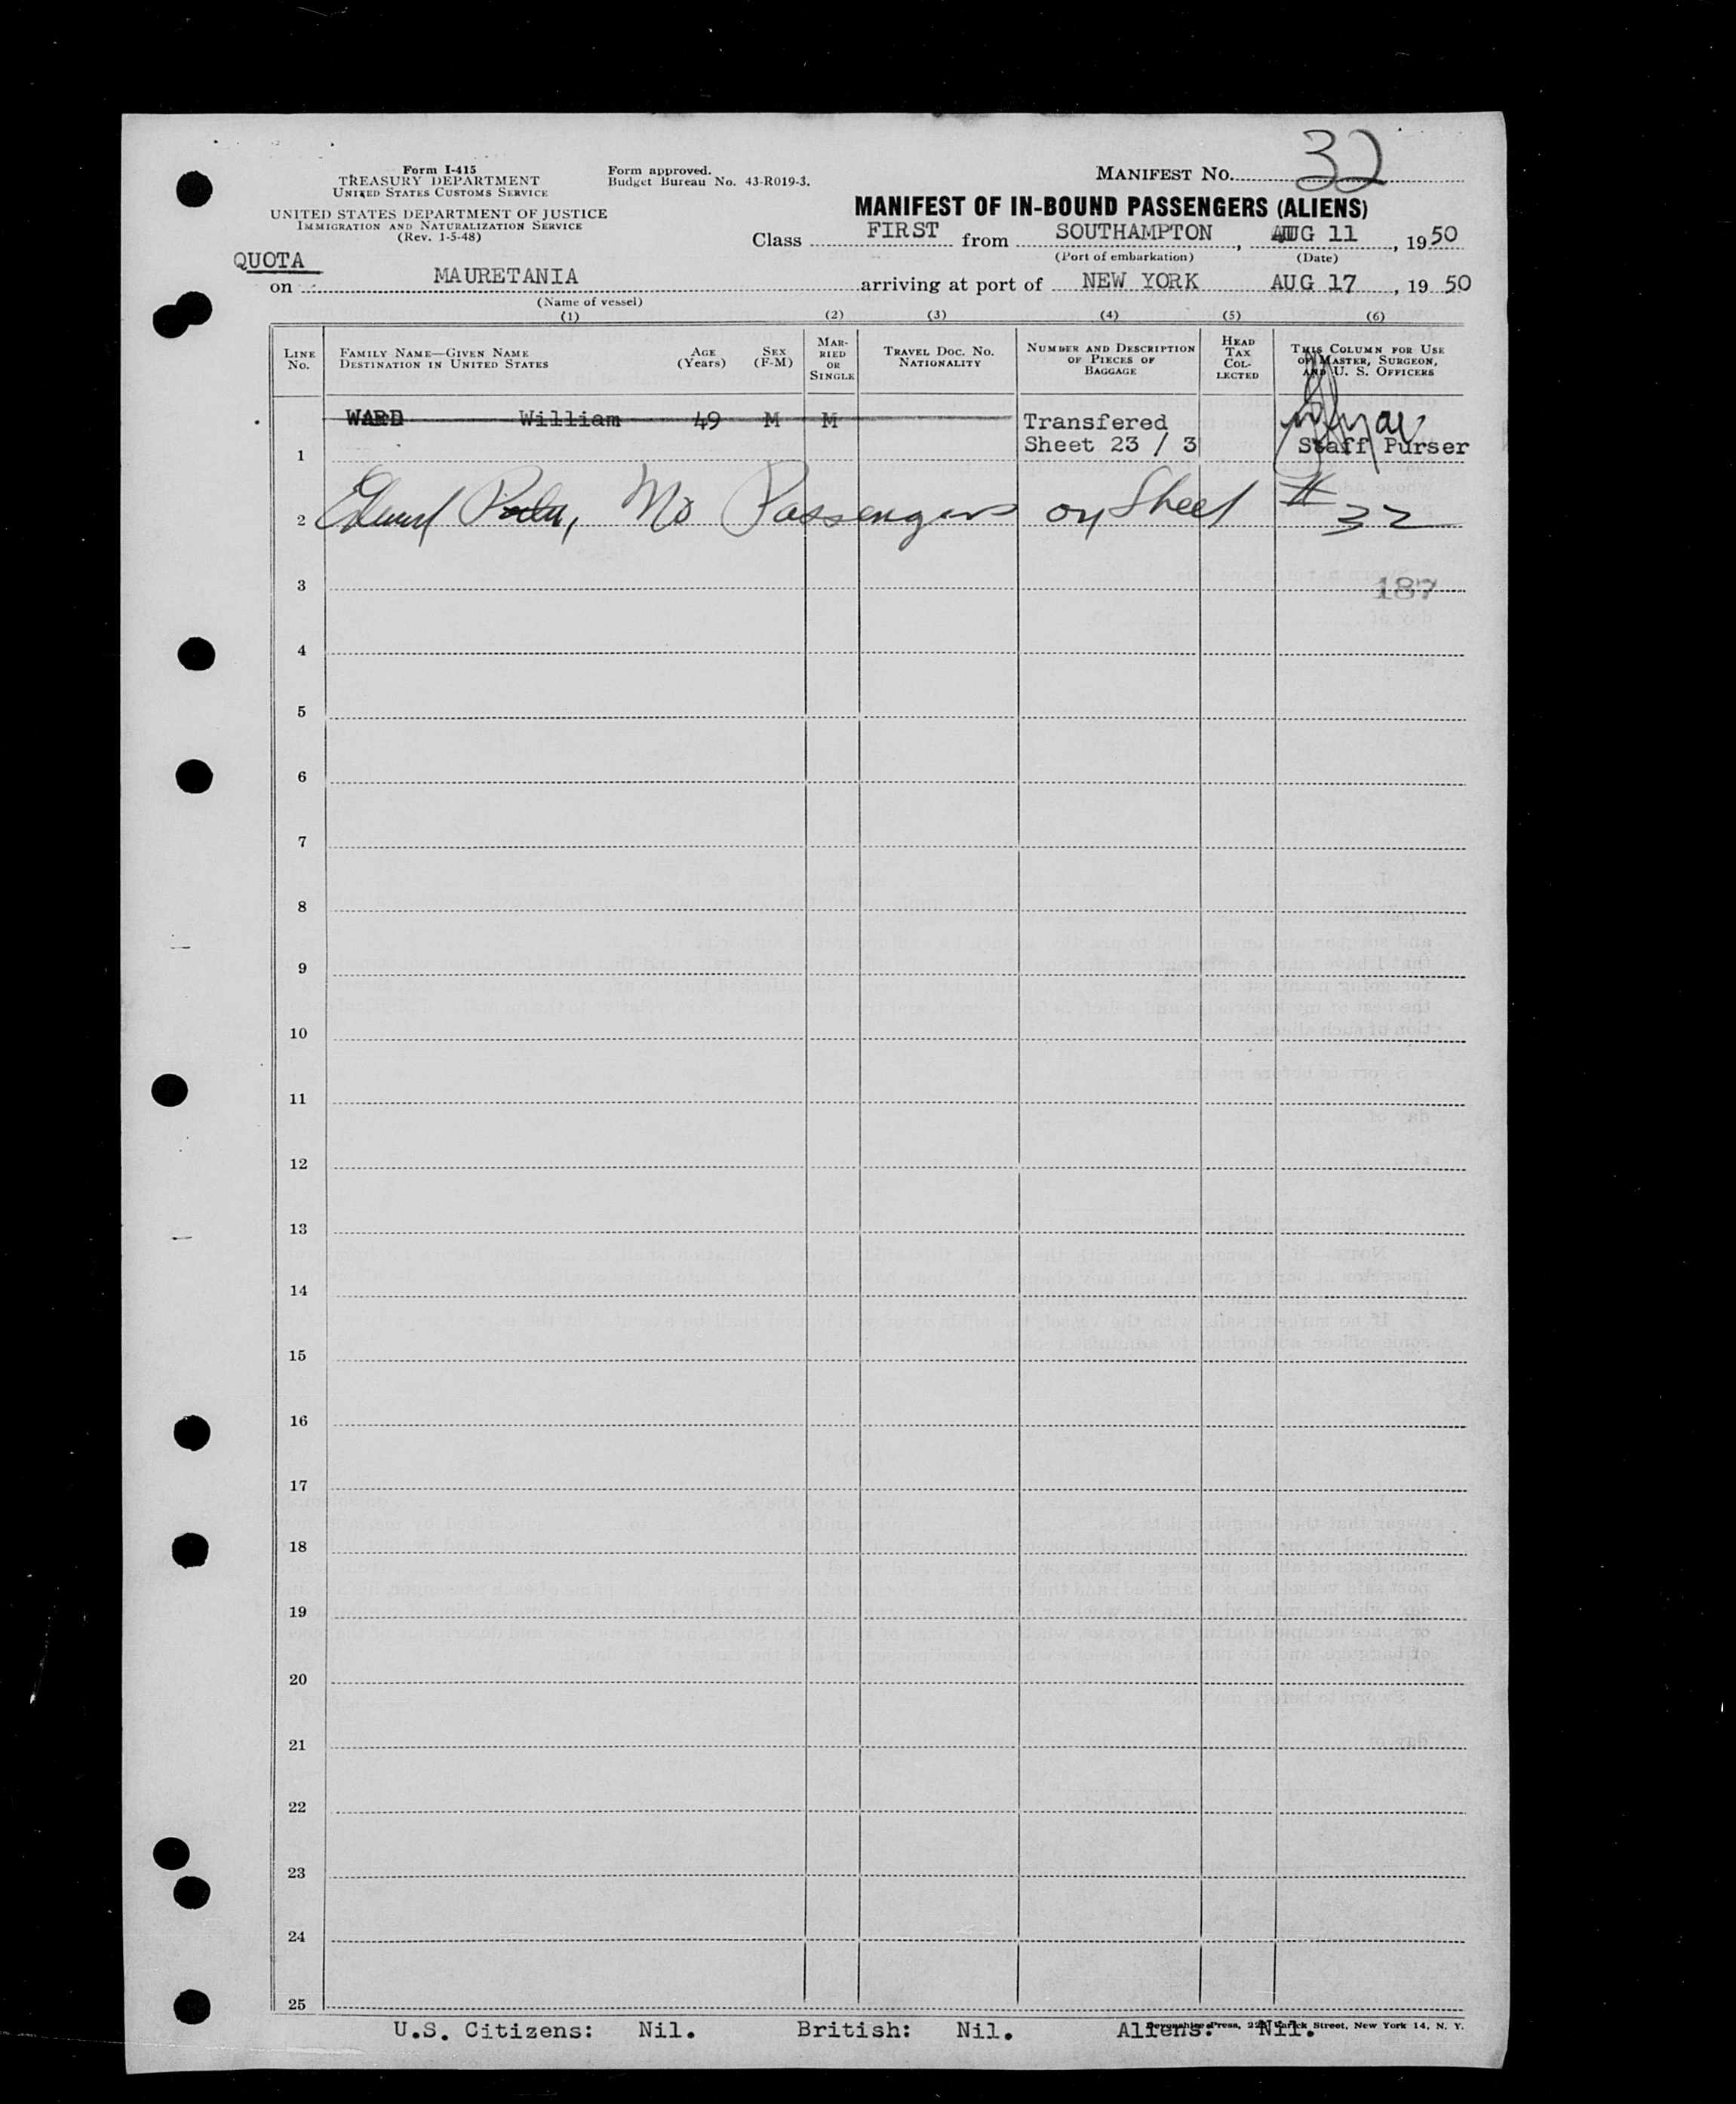 32
Form I-415
TREASURY DEPARTMENT
UNITED STATES CUSTOMS SERVICE
Form approved.
Budget Bureau No. 43-R019-3.
MANIFEST No.
UNITED STATES DEPARTMENT OF JUSTICE
IMMIGRATION AND NATURALIZATION SERVICE
(Rev. 1-5-48)
MANIFEST OF IN-BOUND PASSENGERS (ALIENS)
Class FIRST from SOUTHAMPTON, AUG 11, 1950
(Port of embarkation) (Date)
QUOTA
on MAURETANIA arriving at port of NEW YORK AUG 17, 19 50
(Name of vessel)
(1) (2) (3) (4) (5) (6)
LINE No.
FAMILY NAME—GIVEN NAME
DESTINATION IN UNITED STATES
AGE (Years)
SEX (F-M)
MARRIED OR SINGLE
TRAVEL DOC. No. NATIONALITY
NUMBER AND DESCRIPTION OF PIECES OF BAGGAGE
HEAD TAX COLLECTED
THIS COLUMN FOR USE OF MASTER, SURGEON, AND U. S. OFFICERS
WARD William 49 M M Transfered
1 Sheet 23 / 3 Staff Purser
2 No Passengers on Sheet # 32
3 187
4
5
6
7
8
9
10
11
12
13
14
15
16
17
18
19
20
21
22
23
24
25
U.S. Citizens: Nil. British: Nil. Aliens: Nil.
Press, Varick Street, New York 14, N. Y.